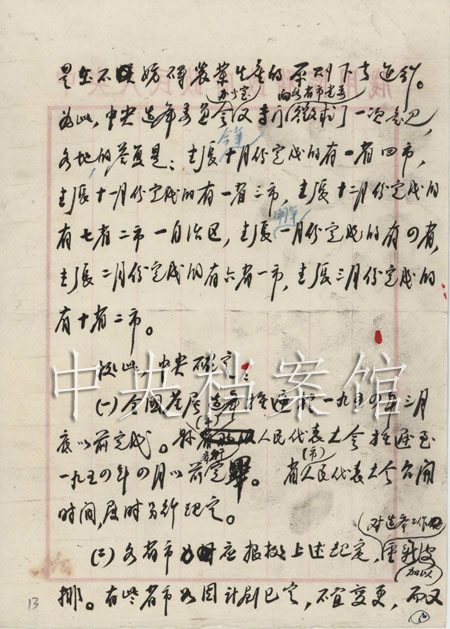 是在不妨碍农业生产的原则下去进行。
为此,中央选举委员会又专门向各省市党委征求了一次意见,
各地的答复是:主张今年十月份完成的有一省四市,
主张十一月份完成的有一省三市,主张十二月份完成的
有七省二市一自治区,主张明年一月份完成的有四省,
主张二月份完成的有六省一市,主张三月份完成的
有十省二市。
因此,中央确定:
(一)全国基层选举推迟到一九五四年三月
底以前完成。县人民代表大会推迟至
一九五四年四月以前完毕。省(市)人民代表大会召开
时间,及时另行规定。
(二)各省市应根据上述规定,对选举工作重新安
排。有些省市如因计划已定,不宜变更,而又
中央档案馆
13